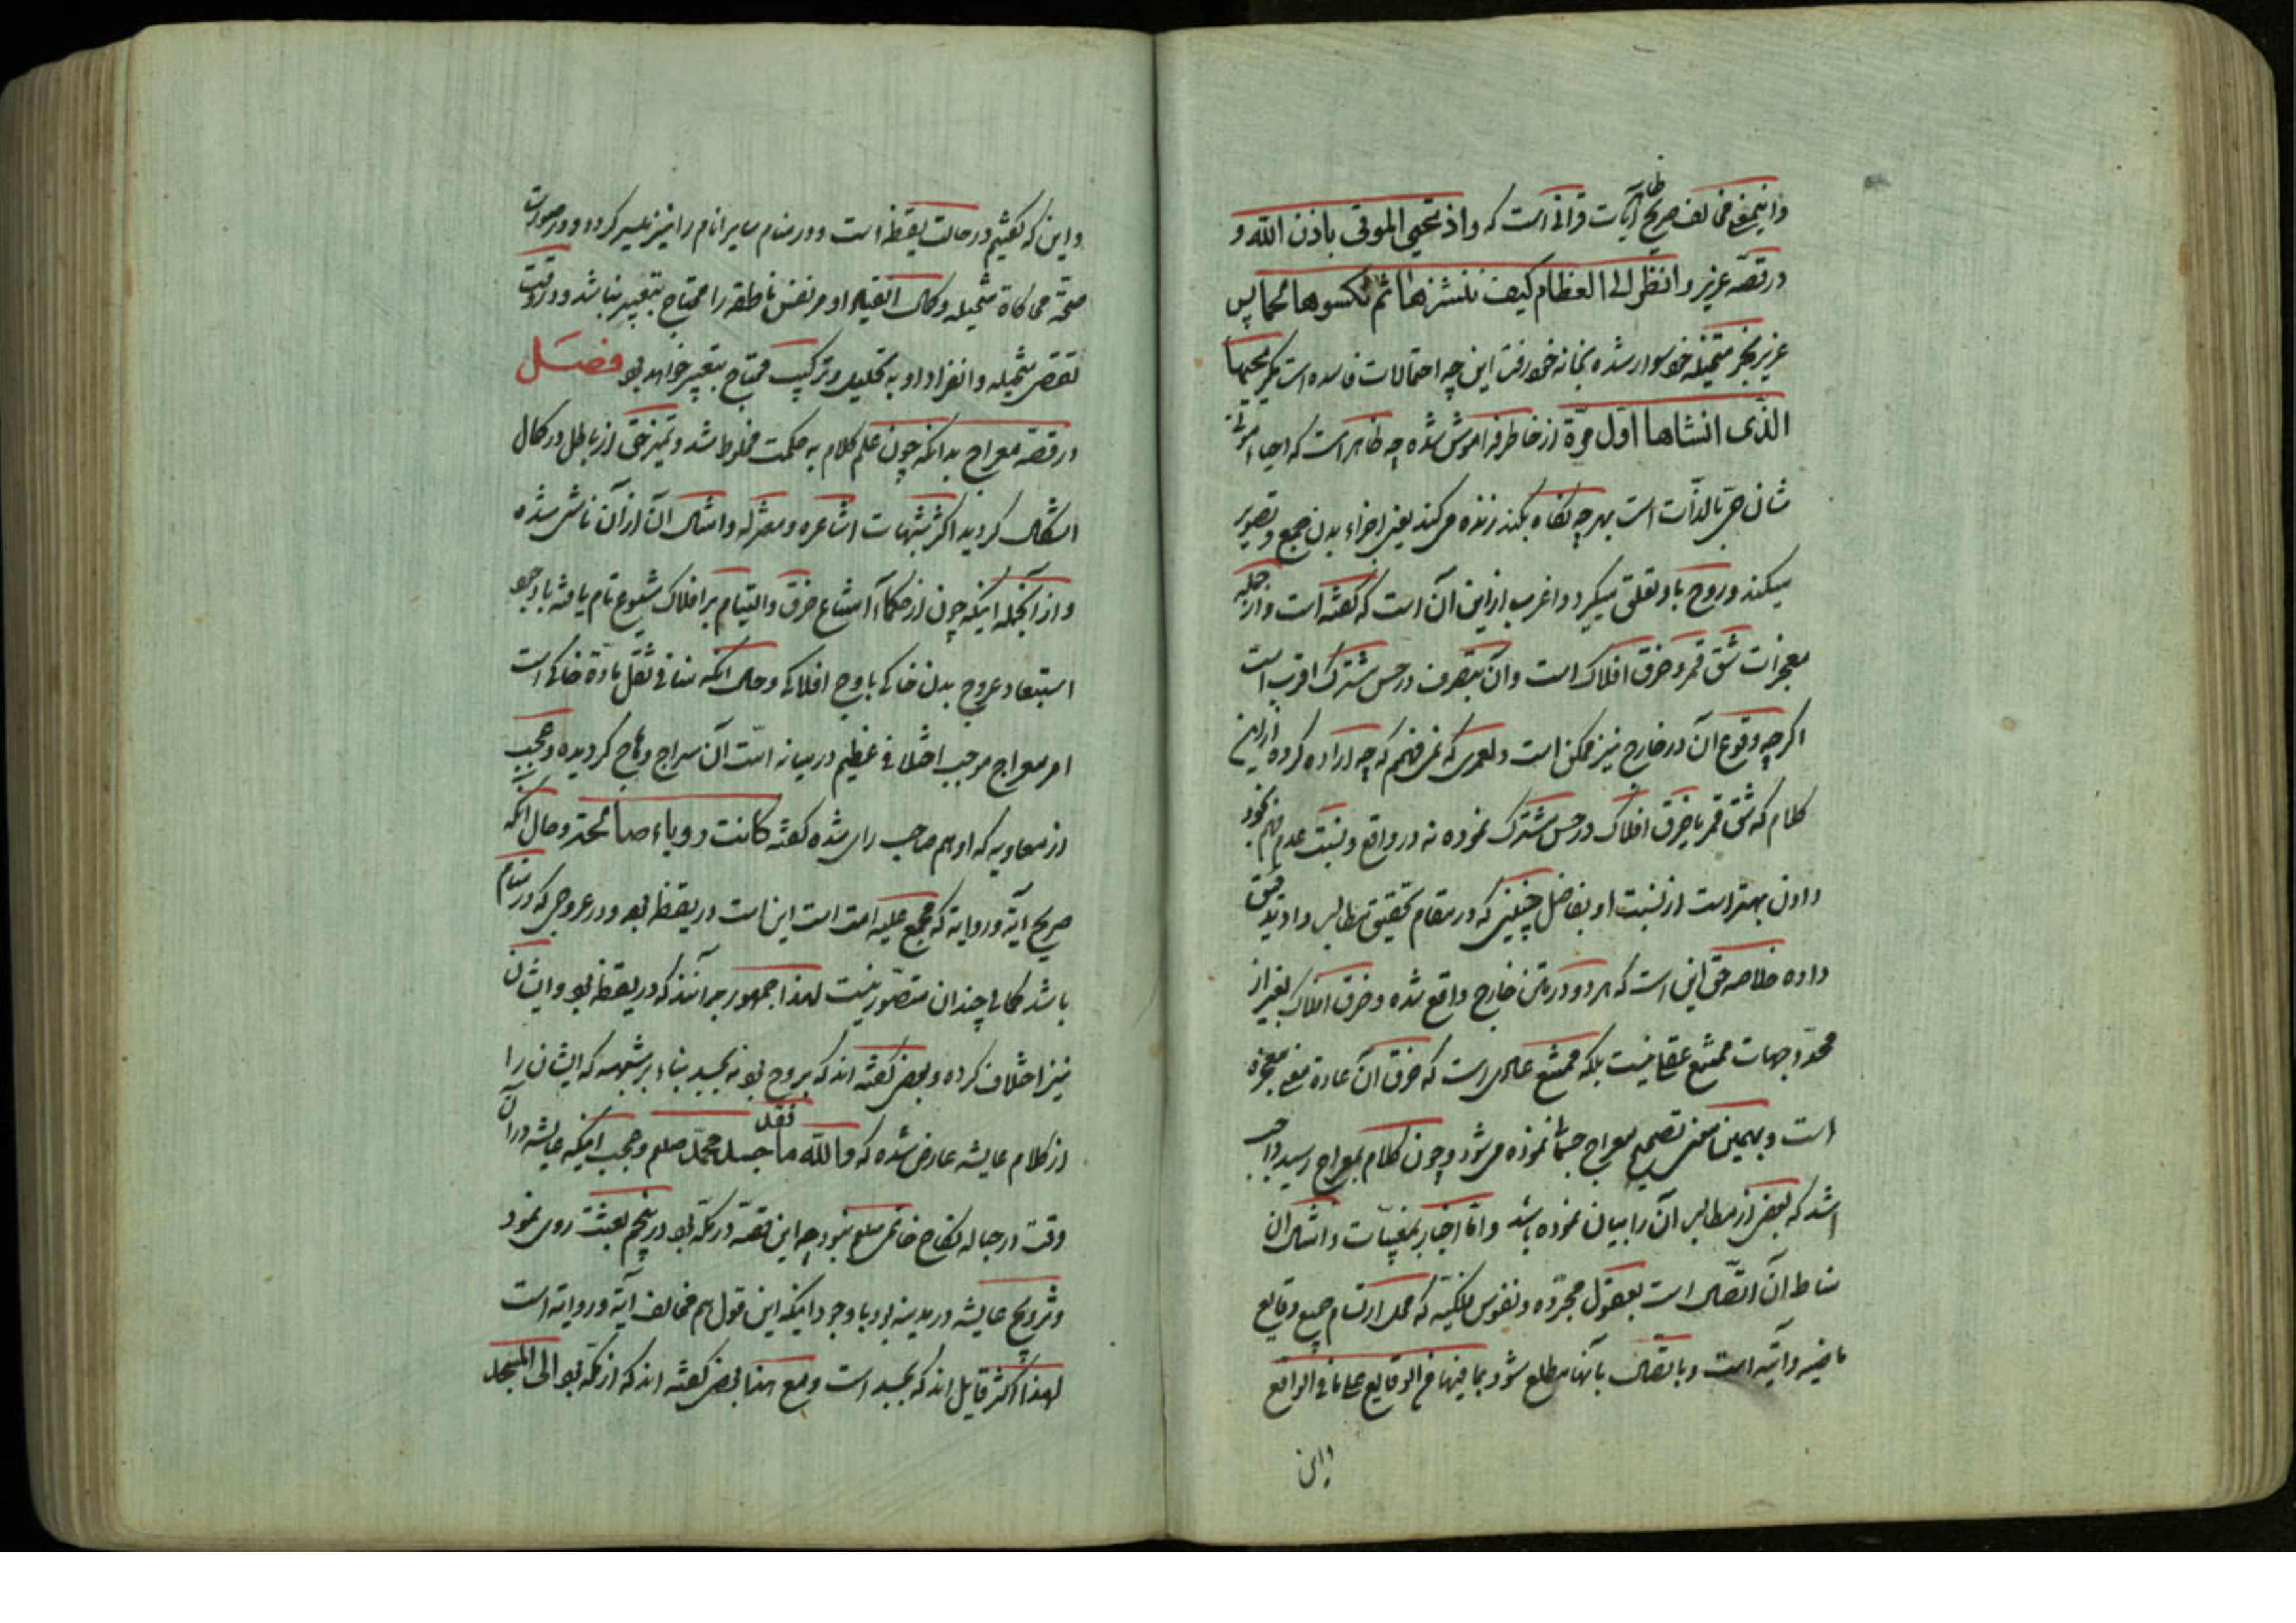 واینمعنی مخالف صریح ظاهر آیات قرانی است که واذ تحیی الموتی باذن الله و
در قصه عزیر وانظر الی العظام کیف ننشزها ثم نکسوها لحما پس
عزیر بخر متخیله خود سوار شده بخانه خود رفت این چه احتمالات فاسده است مگر یحییها
الذی انشاها اول مرة از خاطر فراموش شده چه ظاهر است که احیاء موتی
شان حی بالذات است بهر چه نگاه بکند زنده می کند یعنی اجزاء بدن جمع و تصویر
میکند و روح باو تعلق میگیرد و اغرب از این آن است که گفته است و از جمله
معجزات شق قمر و خرق افلاک است و آن بتصرف در حس مشترک اقرب است
اگر چه وقوع آن در خارج نیز ممکن است ولعمری که نمی فهمم که چه اراده کرده از این
کلام که شق قمر یا خرق افلاک در حس مشترک نموده نه در واقع و نسبت عدم فهم بخود
دادن بهتر است از نسبت او بفاضل چنینی که در مقام تحقیق مطالب داد تدقیق
داده خلاصه حق این است که هر دو در متن خارج واقع شده و خرق افلاک بغیر از
محدد جهات ممتنع عقلی نیست بلکه ممتنع عادی است که خرق آن عادة معنی معجزه
است و بهمین معنی تصحیح معراج جسمانی نموده می شود و چون کلام بمعراج رسید واجب
اشد که بعضی از مطالب آن را بیان نموده باشد و اما اخبار بمغیبات و امثال ان
مناط آن اتصال است بعقول مجرده و نفوس فلکیه که محل ارتسام جمیع وقایع
ماضیه و آتیه است و باتصال بآنها مطلع شود بما فیها من الوقایع علی ما فی الواقع
واین
واین که گفتیم در حالت یقظه است و در منام سایر انام را نیز میسر گردد و در صورت
صحة محاکاة متخیله و کمال انقیاد او مر نفس ناطقه را محتاج بتعبیر نباشد و در وقت
نقص متخیله و انفراد او به تحلیل و ترکیب محتاج بتعبیر خواهد بود فصل
در قصه معراج بدانکه چون علم کلام به حکمت مخلوط شد و تمیز حق از باطل در کمال
اشکال گردید اکثر شبهات اشاعره و معتزله و امثال آن از آن ناشی شده
و از آنجمله اینکه چون از حکماء امتناع خرق و التیام بر افلاک شیوع تام یافته با وجود
استبعاد عروج بدن خاکی باوج افلاکی و حال انکه منافی ثقل ماده خاکی است
امر معراج موجب اختلافی عظیم در میانه امت آن سراج وهاج گردیده و عجب
از معاویه که او هم صاحب رای شده گفته کانت رویاء صالحة و حال آنکه
صریح آیه و روایه که مجمع علیه امت است این است در یقظه بود و در عروجی که در منام
باشد کمالی چندان متصور نیست لهذا جمهور بر آنند که در یقظه بود و ایشان
نیز اختلاف کرده و بعضی گفته اند که بروح بود نه بجسد بناء بر شبهه که ایشان را
از کلام عایشه عارض شده که والله ما فقد جسد محمد صلعم و عجب اینکه عایشه در آن
وقت در حباله نکاح خاتمی صلعم نبود چه این قصه در مکه بود در پنجم بعثت روی نمود
و تزویج عایشه در مدینه بود با وجود اینکه این قول هم مخالف آیه و روایه است
لهذا اکثر قایل اند که بجسد است و مع هذا بعضی گفته اند که از مکه بود الی المسجد